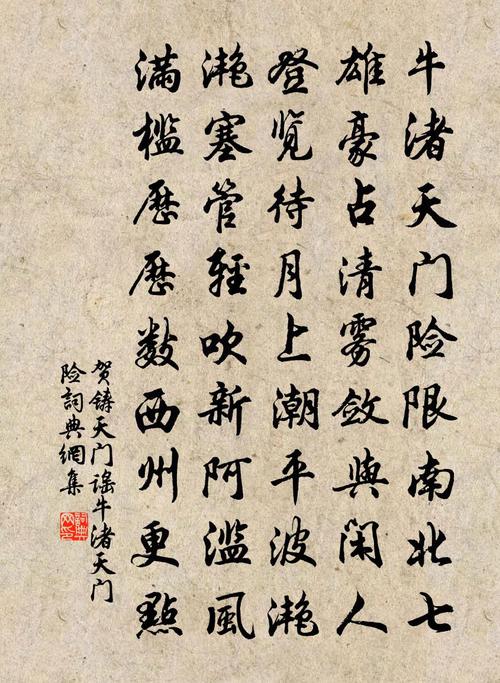 牛渚天门险限南北七
雄豪占清雾敛與闲人
登览待月上潮平波滟
滟塞管轻吹新阿滥風
满槛歷歷数西州更點
贺铸天门謠牛渚天门
险詞典網集